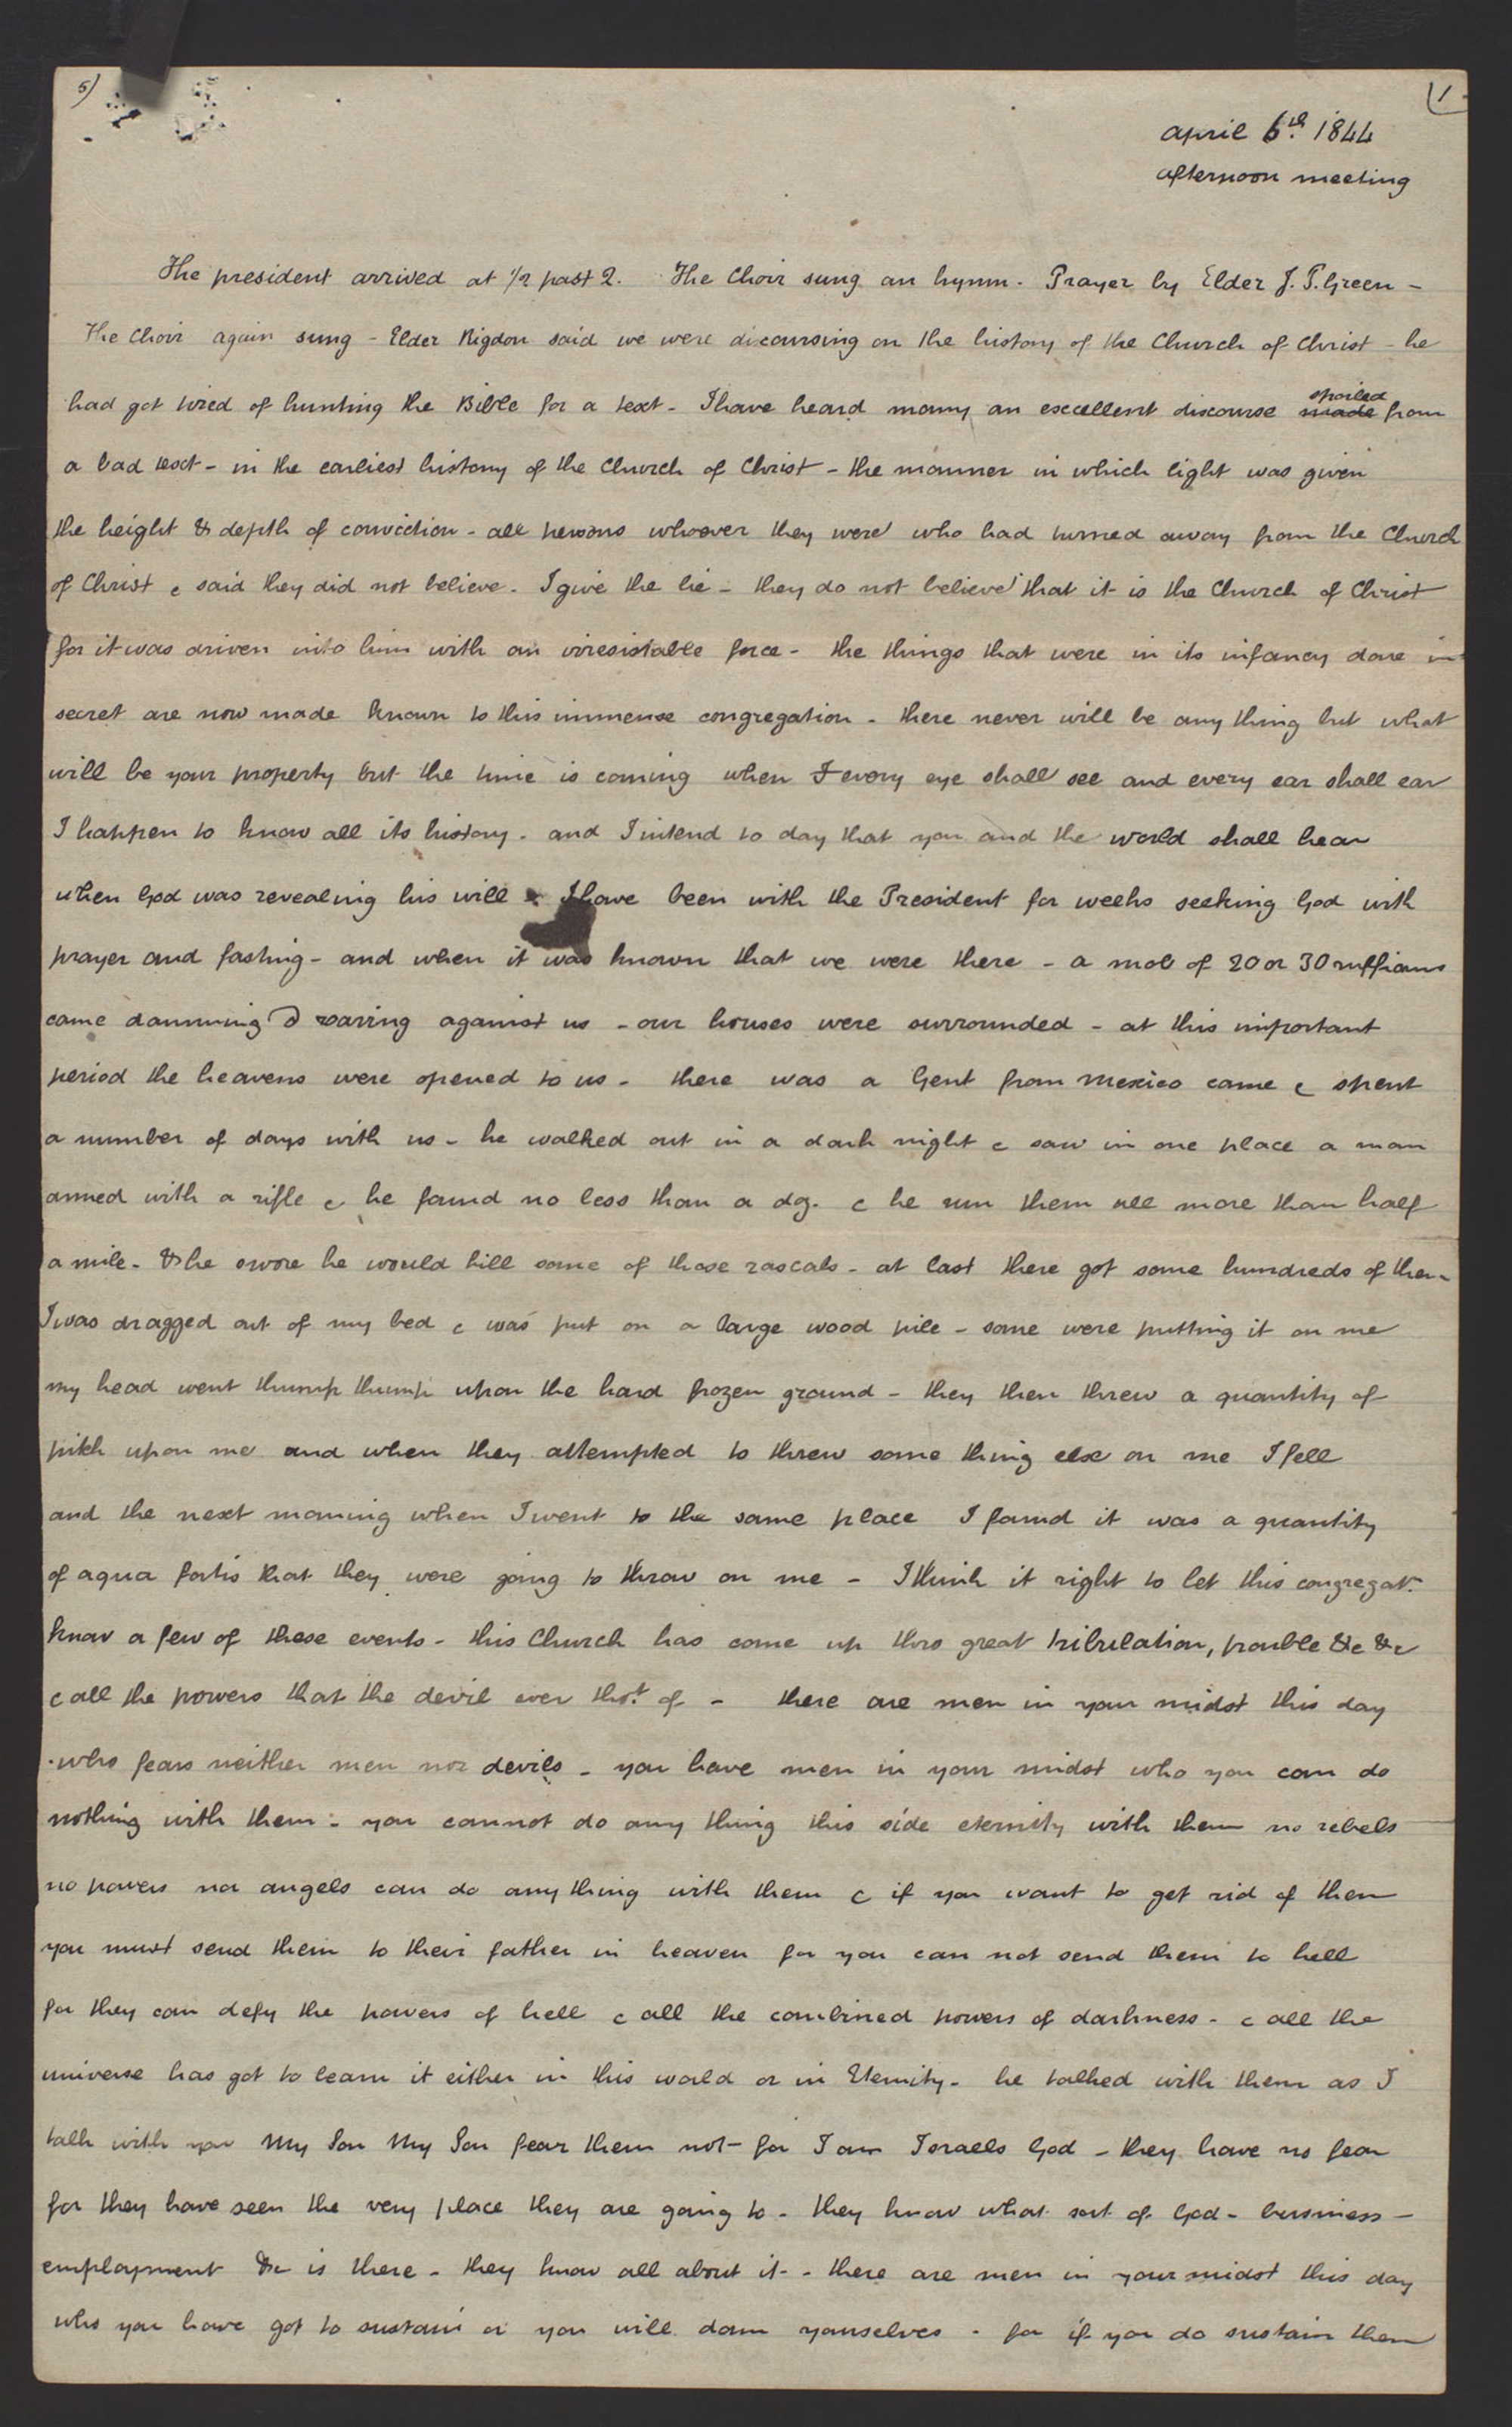 5)
1
april 6th. 1844
afternoon meeting
The president arrived at 1/2 past 2. The Choir sung an hymn. Prayer by Elder J. P. Green -
The Choir again sung - Elder Rigdon said we were discoursing on the history of the Church of Christ - he
had got tired of hunting the Bible for a text - I have heard many an excellent discourse made spoiled from
a bad text - in the earliest history of the Church of Christ - the manner in which light was given
the height & depth of conviction - all persons whoever they were who had turned away from the Church
of Christ & said they did not believe. I give the lie - they do not believe that it is the Church of Christ
for it was driven into him with an irresistable force - the things that were in its infancy done in
secret are now made known to this immense congregation - there never will be any thing but what
will be your property but the time is coming when I every eye shall see and every ear shall ear
I happen to know all its history - and I intend to day that you and the world shall hear
when God was revealing his will & I have been with the President for weeks seeking God with
prayer and fasting - and when it was known that we were there - a mob of 20 or 30 ruffians
came damning & roaring against us - our houses were surrounded - at this important
period the heavens were opened to us - there was a Gent from Mexico came & spent
a number of days with us - he walked out in a dark night & saw in one place a man
armed with a rifle & he found no less than a dz. & he run them all more than half
a mile - & he swore he would kill some of those rascals - at last there got some hundreds of them
I was dragged out of my bed & was put on a large wood pile - some were putting it on me
my head went thump thump upon the hard frozen ground - they then threw a quantity of
pitch upon me and when they attempted to threw some thing else on me I fell
and the next morning when I went to the same place I found it was a quantity
of aqua fortis that they were going to throw on me - I think it right to let this congregatn.
know a few of these events - this Church has come up thro great tribulation, trouble &c &c
& all the powers that the devil ever thot. of - there are men in your midst this day
who fears neither men nor devils - you have men in your midst who you can do
nothing with them - you cannot do any thing this side eternity with them no rebels
no powers nor angels can do any thing with them & if you want to get rid of them
you must send them to their father in heaven for you can not send them to hell
for they can defy the powers of hell & all the combined powers of darkness - & all the
universe has got to learn it either in this world or in Eternity - he talked with them as I
talk with you My Son My Son fear them not - for I am Israels God - they have no fear
for they have seen the very place they are going to - they know what sort of God - bursiness -
employment &c is there - they know all about it - there are men in your midst this day
who you have got to sustain or you will dam yourselves - for if you do sustain them